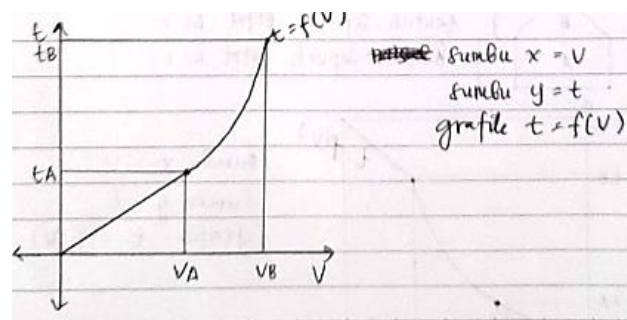 t
tB
t = f(V)
tA
VA
VB
V
sumbu x = V
sumbu y = t
grafik t = f(V)